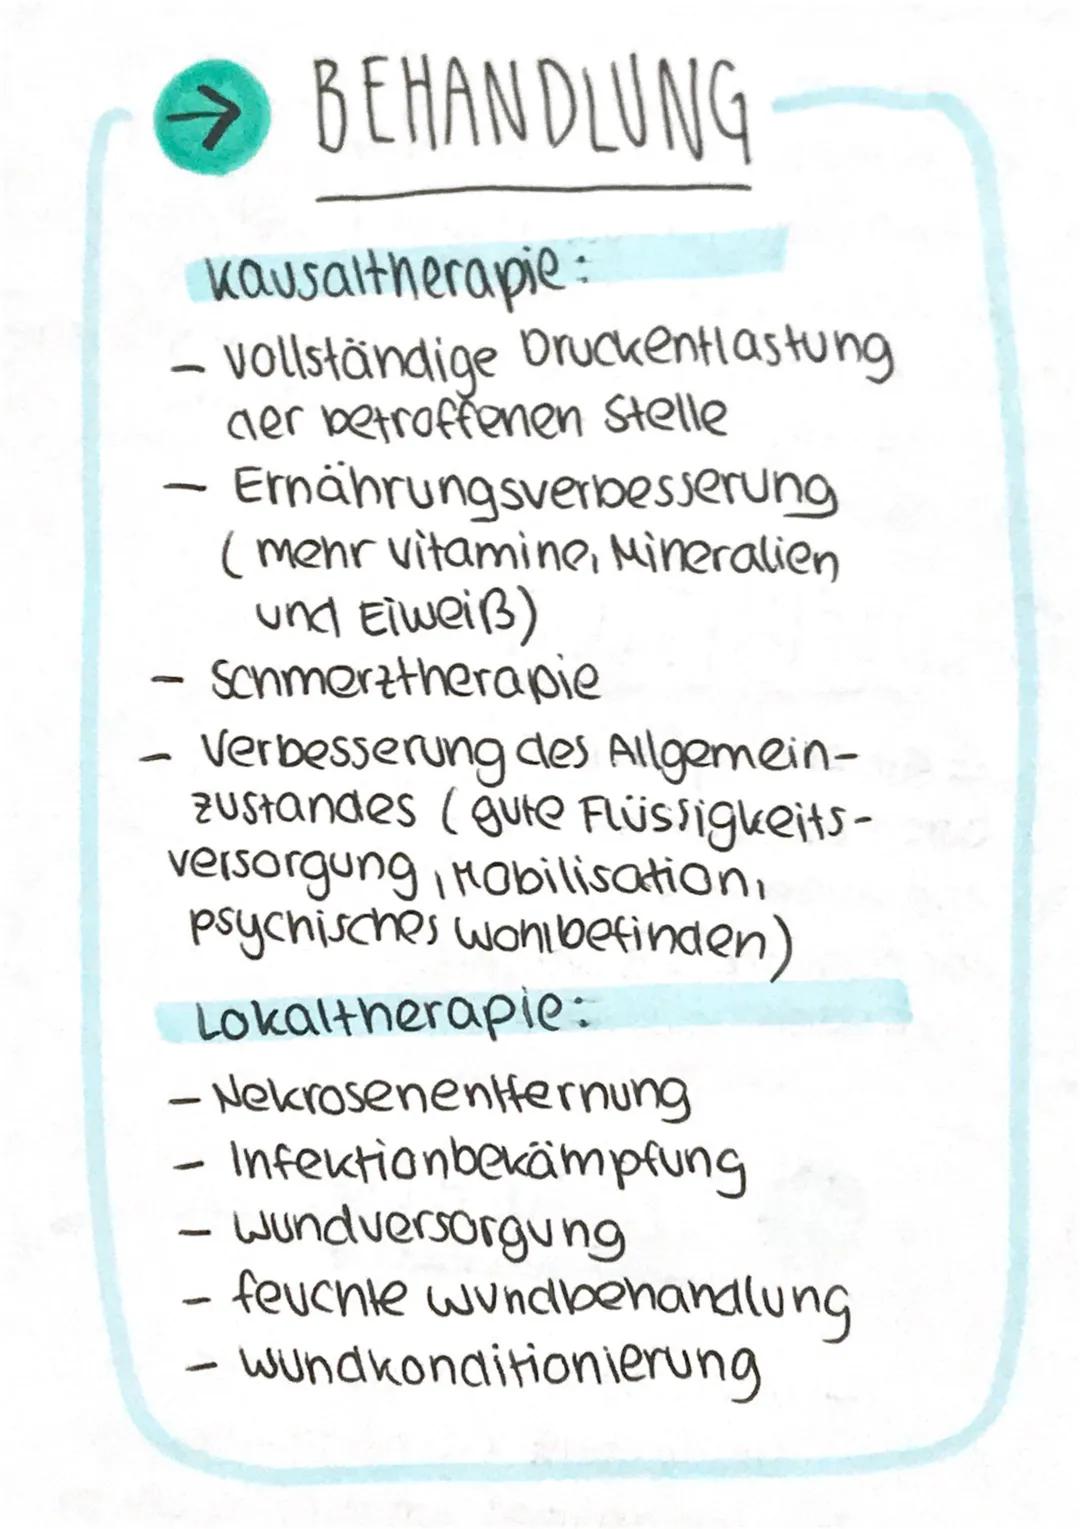 → BEHANDLUNG
Kausaltherapie:
- vollständige Druckentlastung
der betroffenen Stelle
- Ernährungsverbesserung
(mehr Vitamine, Mineralien
und Eiweiß)
- Schmerztherapie
- Verbesserung des Allgemein-
zustandes (gute Flüssigkeits-
versorgung, Mobilisation,
psychisches Wohlbefinden)
Lokaltherapie:
- Nekrosenentfernung
- Infektionbekämpfung
- Wundversorgung
- feuchte Wundbehandlung
- Wundkonditionierung